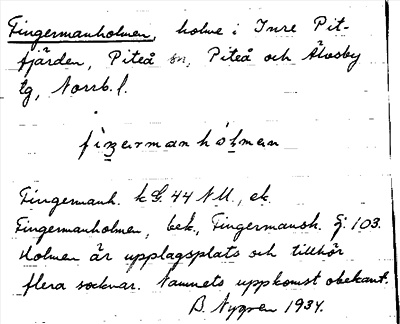 Fingermanholmen, holme i Inre Pit-
fjärden, Piteå sn, Piteå och Älvsby
tg, Norrb. l.
fiŋərmanhólmən
Fingermanh. kG. 44 NU., ek.
Fingermanholmen, bek., Fingermansh. Gj: 103.
Holmen är upplagsplats och tillhör
flera socknar. Namnets uppkomst obekant.
B. Nygren 1934.